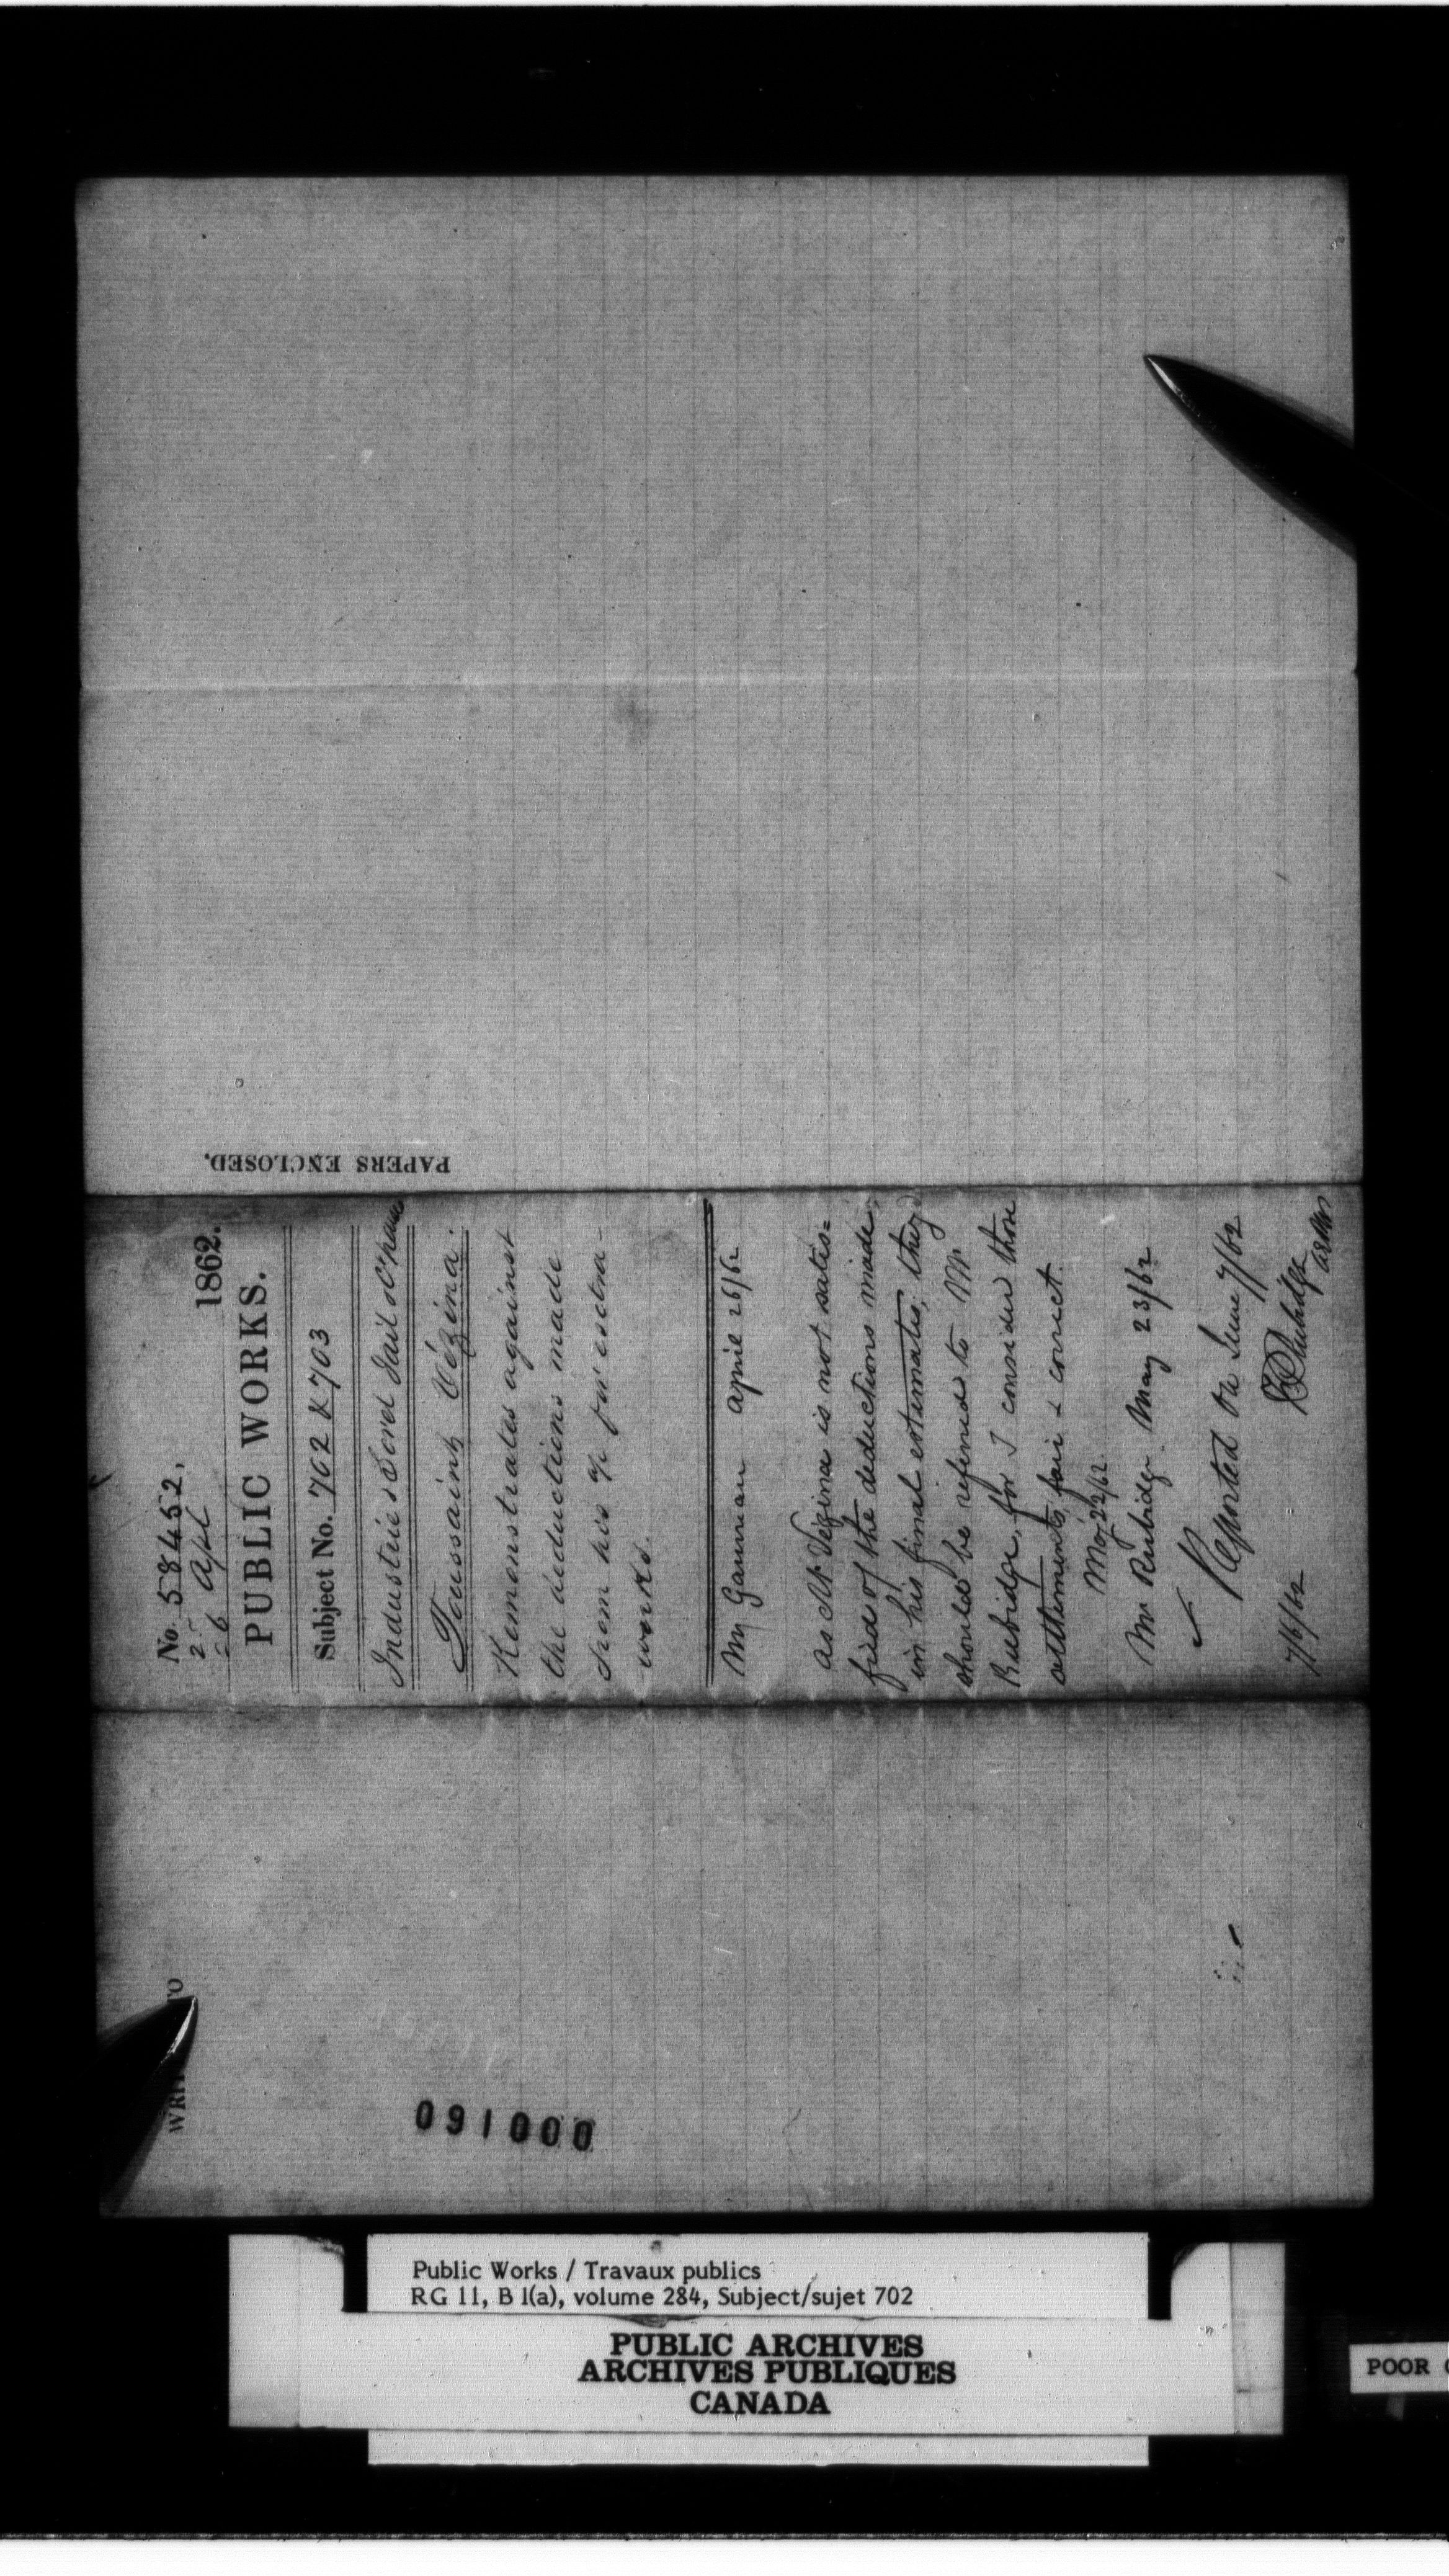 PAPERS ENCLOSED.
No. 58452.
25 Apl
26 1862.
PUBLIC WORKS.
Subject No. 702 & 703
Industrie & Sorel Jail & C'house
Toussaint Vézina.
Remonstrates against
the deductions made
from his a/c for extra-
works.
Mr Gauvreau april 26/62
as Mr Vezina is not satis=
fied of the deductions made
in his final estimates, they
should be referred to Mr
Rubidge, for I consider those
settlements fair & correct.
May 22/62
Mr Rubidge. May 23/62
Reported on June 7/62
FPRubidge
7/6/62
WRIT TO
091000
Public Works / Travaux publics
RG 11, B 1(a), volume 284, Subject/sujet 702
PUBLIC ARCHIVES
ARCHIVES PUBLIQUES
CANADA
POOR